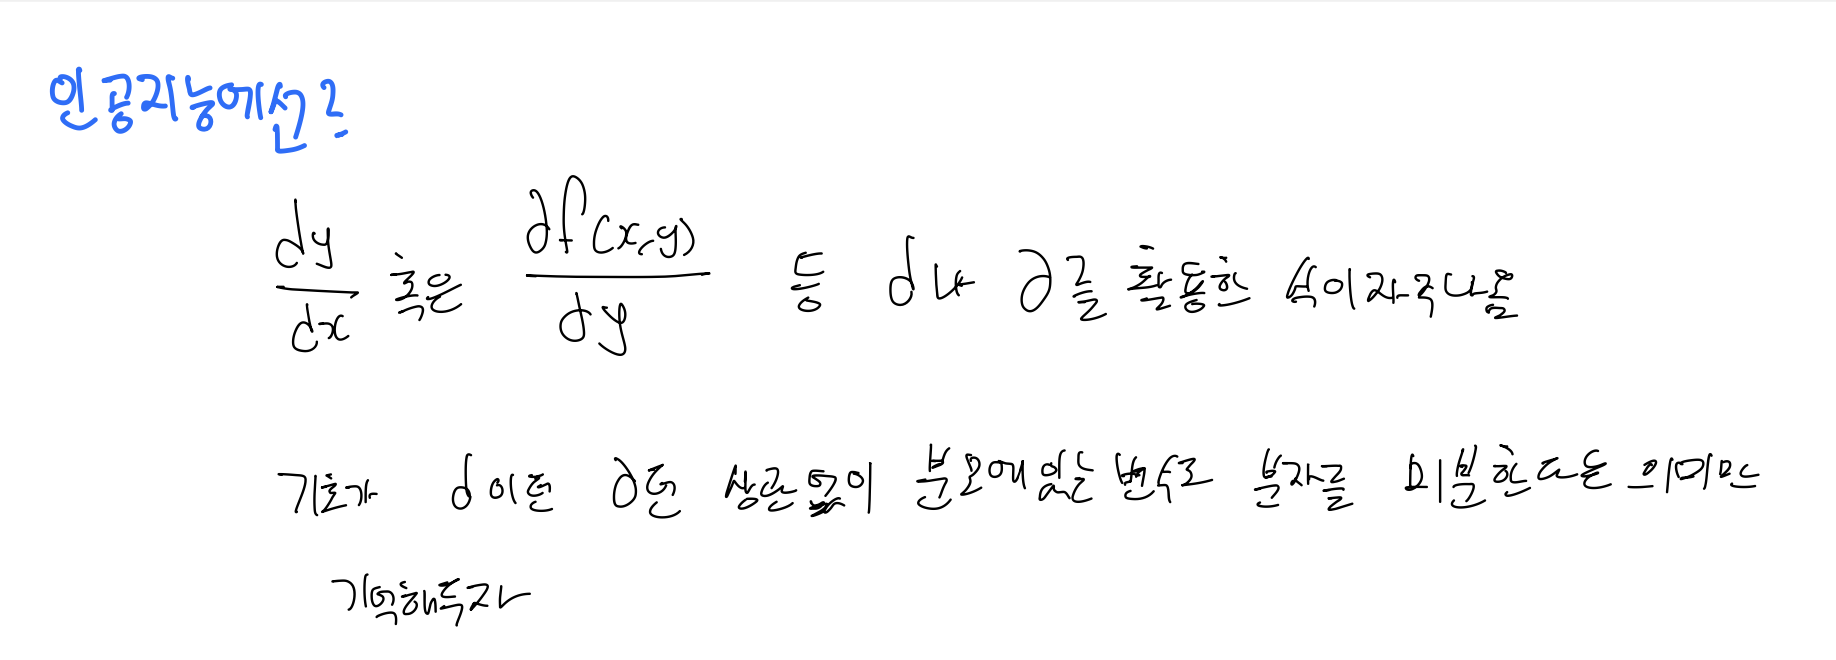 인공지능에선?
dy/dx 혹은 ∂f(x,y)/∂y 등 d나 ∂를 활용한 식이 자주 나옴
기호가 d이던 ∂던 상관 없이 분모에 있는 변수로 분자를 미분한다는 의미만
기억해두자